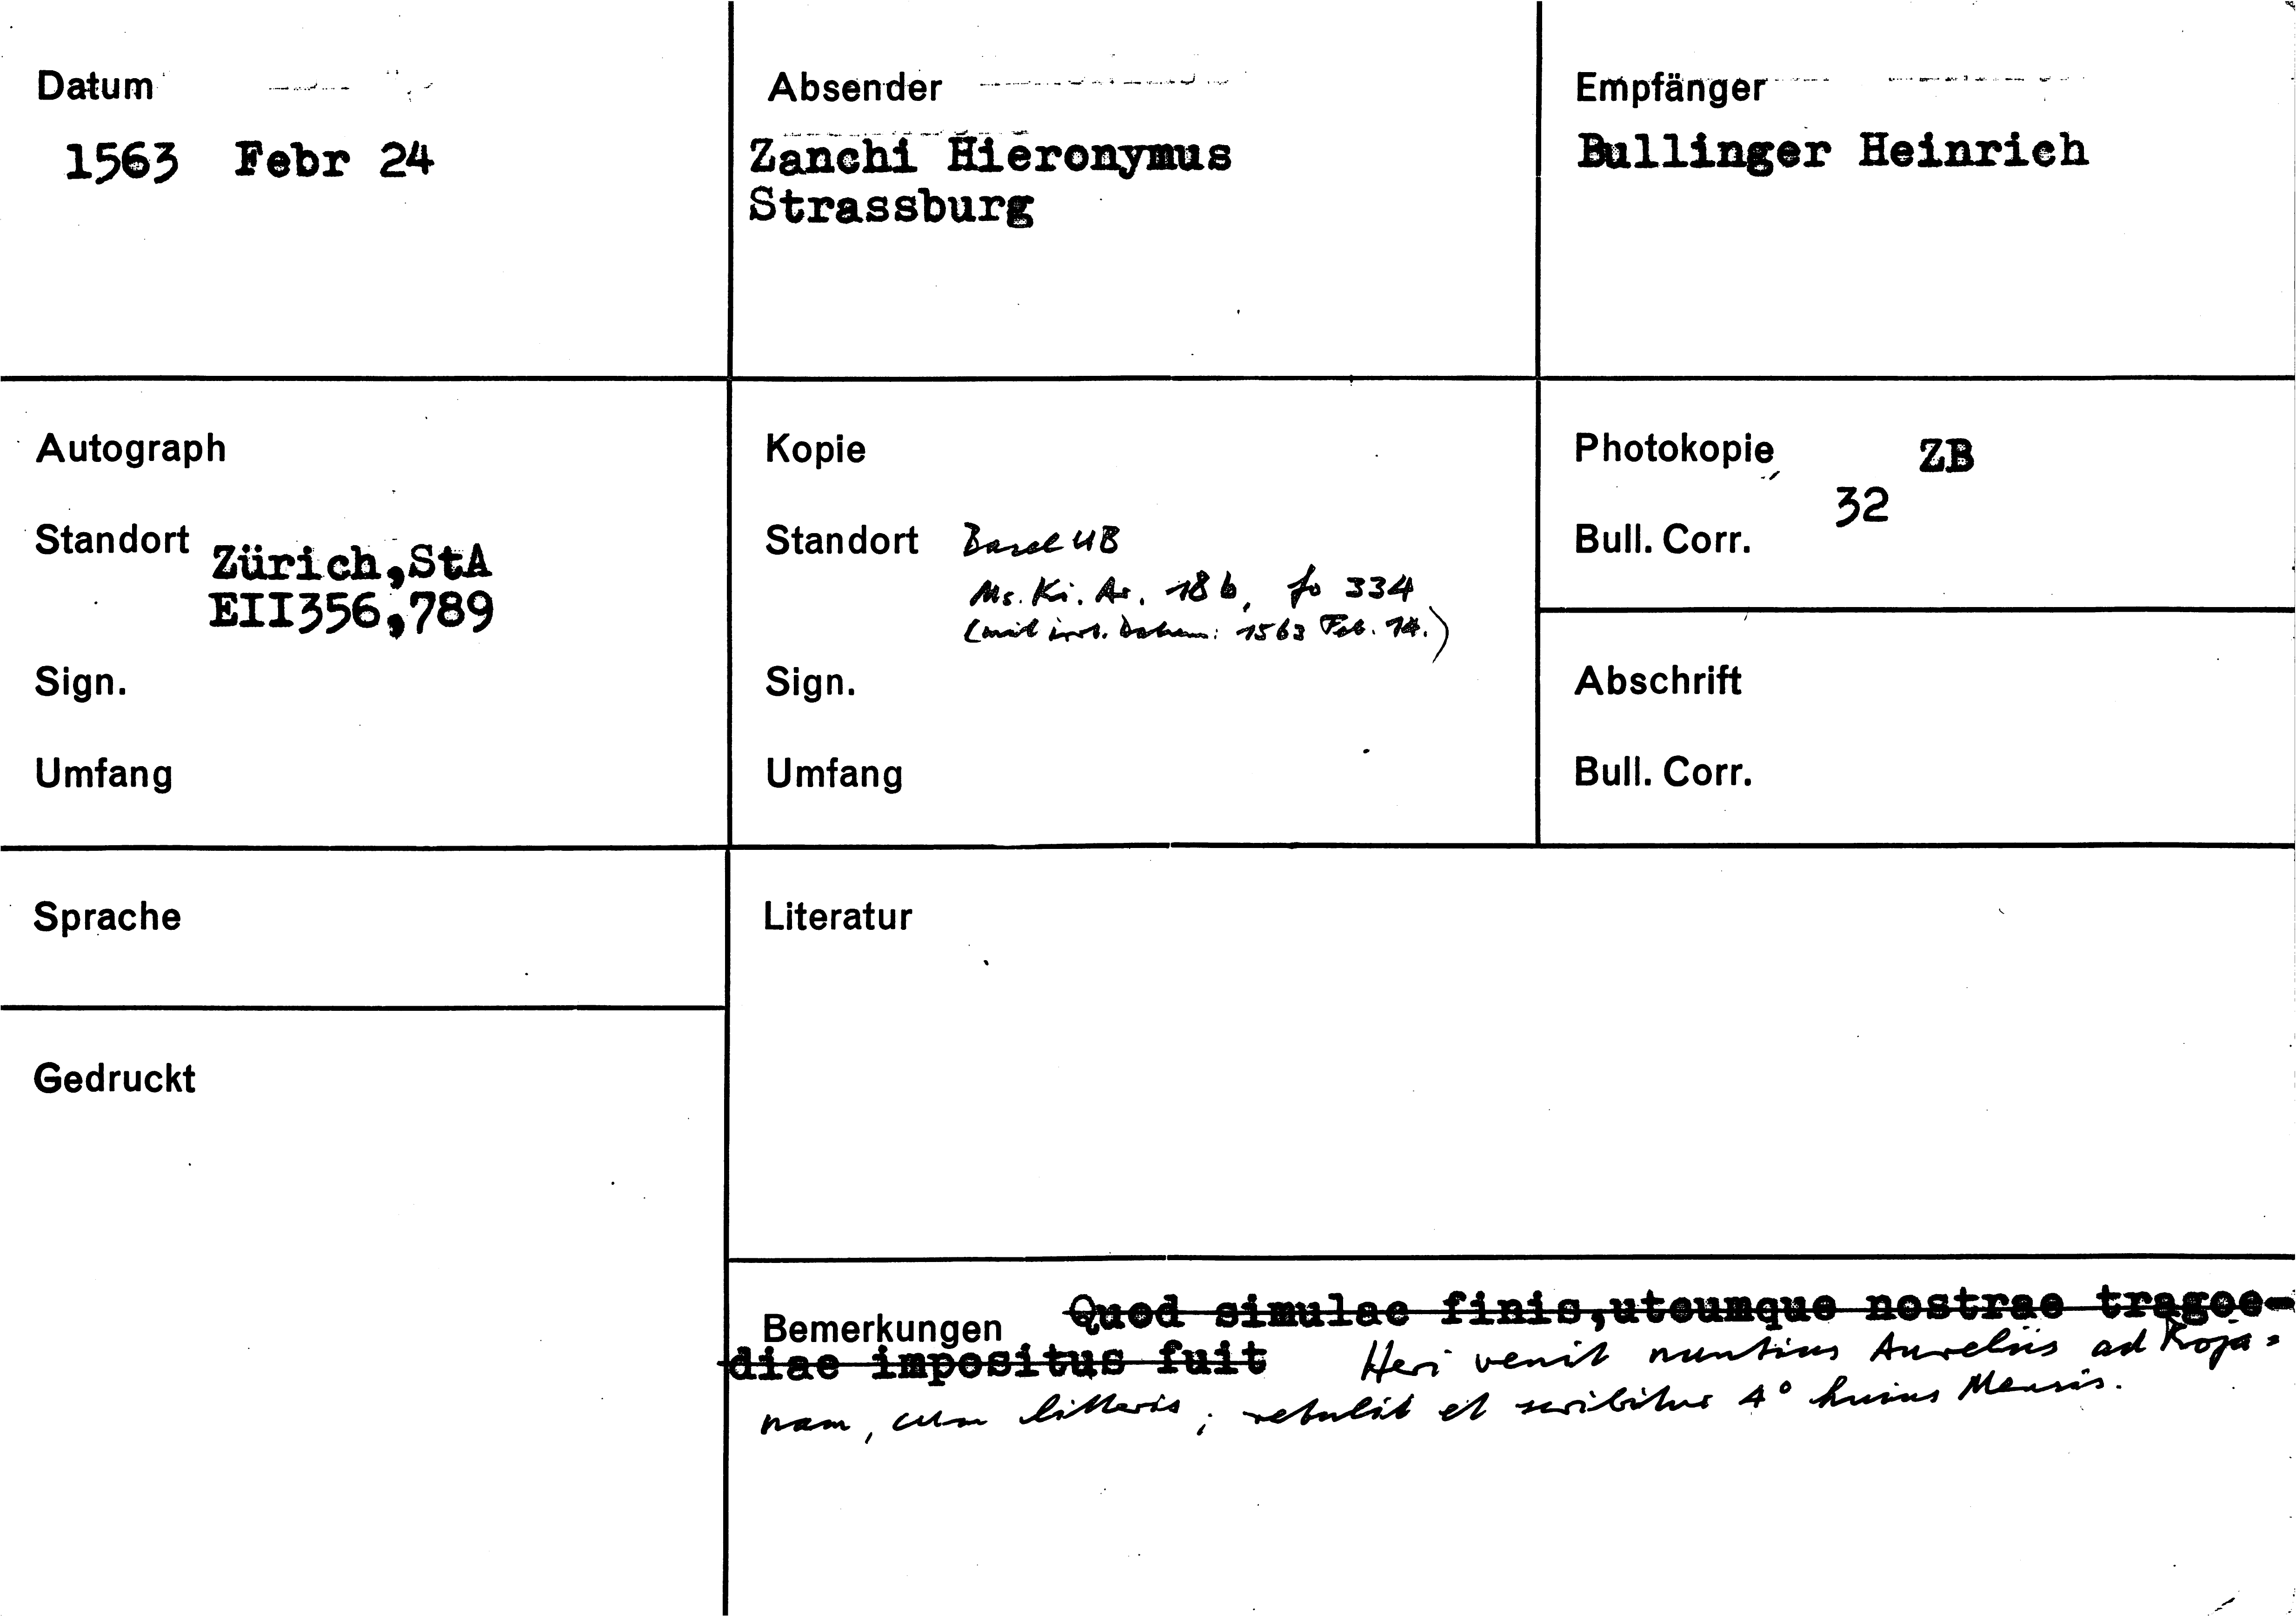 Datum
1563 Febr 24
Absender
Zanchi Hieronymus
Strassburg
Empfänger
Bullinger Heinrich
Autograph
Standort Zürich,StA
EII356,789
Sign.
Umfang
Kopie
Standort Basel UB
Ms. Ki. Ar. 18 b, fo 334
(mit irrt. Datum: 1563 Feb. 14.)
Sign.
Umfang
Photokopie ZB
32
Bull. Corr.
Abschrift
Bull. Corr.
Sprache
Gedruckt
Literatur
Bemerkungen Quod simulac finis,utcumque nostrae tragoe-
diae impositus fuit Heri venit nuntius Aurelius ad
nam, cum litteris; retulit et scribitur 4° huius Mensis.